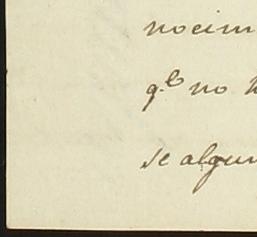 nocim
q.lo no
se algun